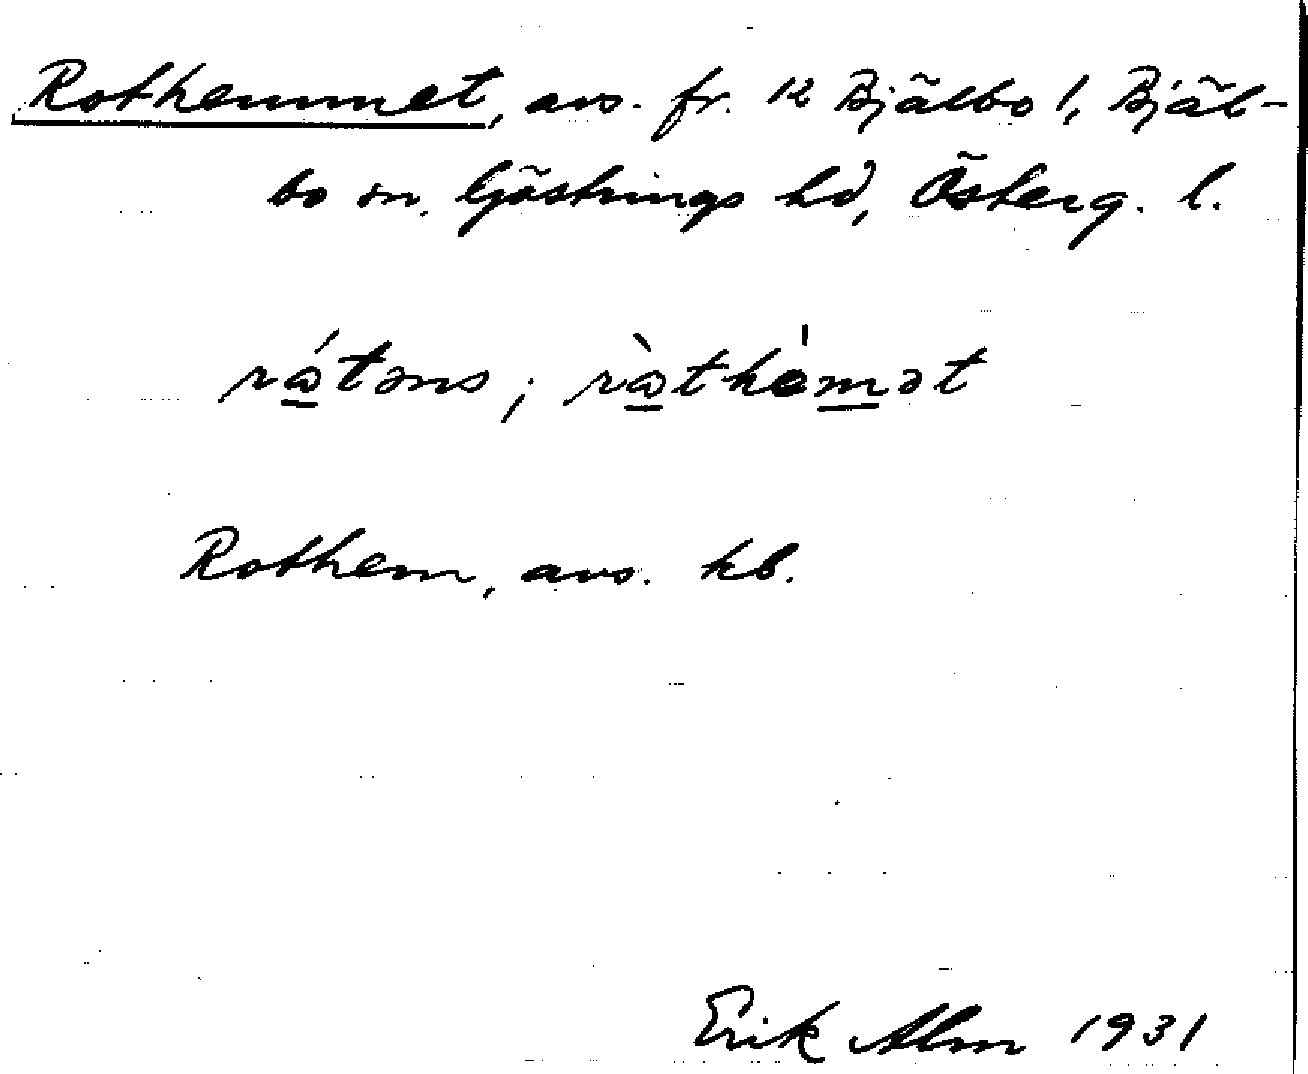 Rothemmet, avs. fr. 12 Bjälbo 1, Bjäl-
bo sn. Göstrings hd, Österg. l.
rátəns; ràthèmət
Rothem, avs. kb.
Erik Alm 1931